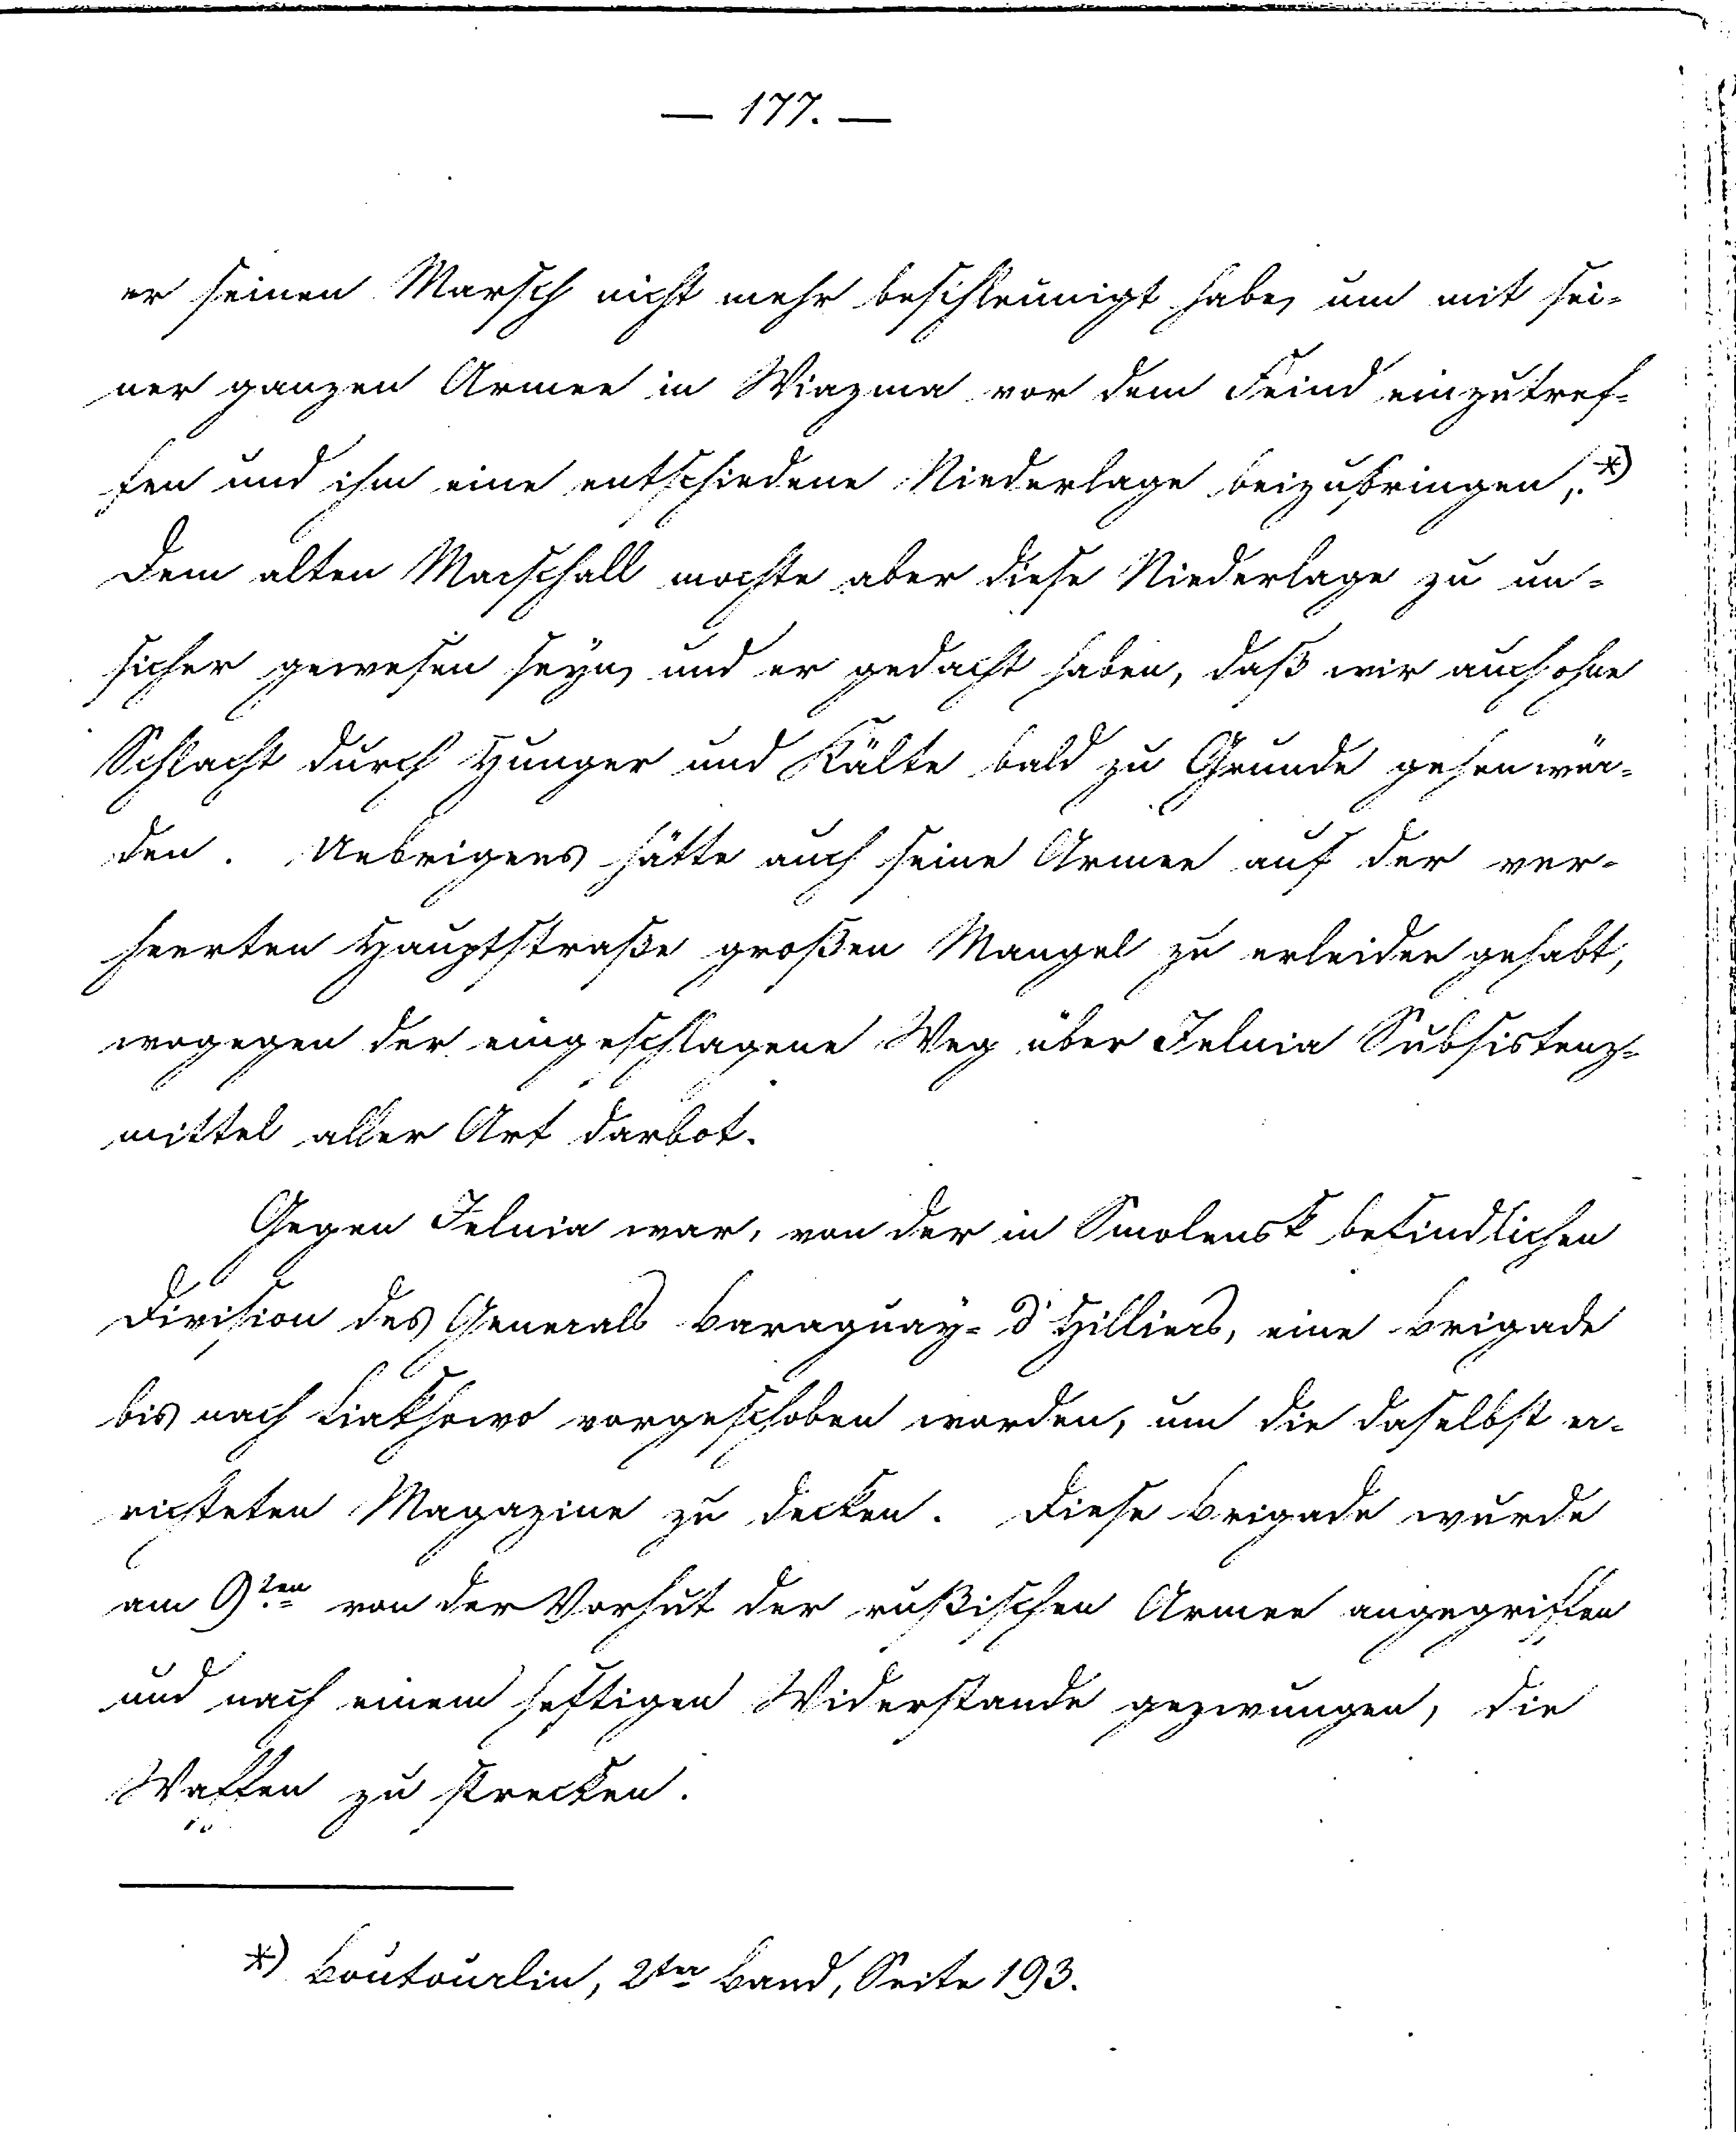 — 177. —
er seinen Marsch nicht mehr beschleunigt habe, um mit sei-
ner ganzen Armee in Wiazma vor dem Feind einzutref-
fen und ihm eine entschiedene Niederlage beizubringen,. *)
Dem alten Marschall mochte aber diese Niederlage zu un-
sicher gewesen seyn, und er gedacht haben, daß wir auch ohne
Schlacht durch Hunger und Kälte bald zu Grunde gehen wür-
den. Uebrigens hätte auch seine Armee auf der ver-
heerten Hauptstraße großen Mangel zu erleiden gehabt,
wogegen der eingeschlagene Weg über Jelnia Subsistenz-
mittel aller Art darbot.
Gegen Jelnia war, von der in Smolensk befindlichen
Division des Generals Baraguay-d'Hilliers, eine Brigade
bis nach Liakhowo vorgeschoben worden, um die daselbst er-
richteten Magazine zu decken. Diese Brigade wurde
am 9ten von der Vorhut der rußischen Armee angegriffen
und nach einem heftigen Widerstande gezwungen, die
Waffen zu strecken.
*) Boutourlin, 2ter Band, Seite 193.